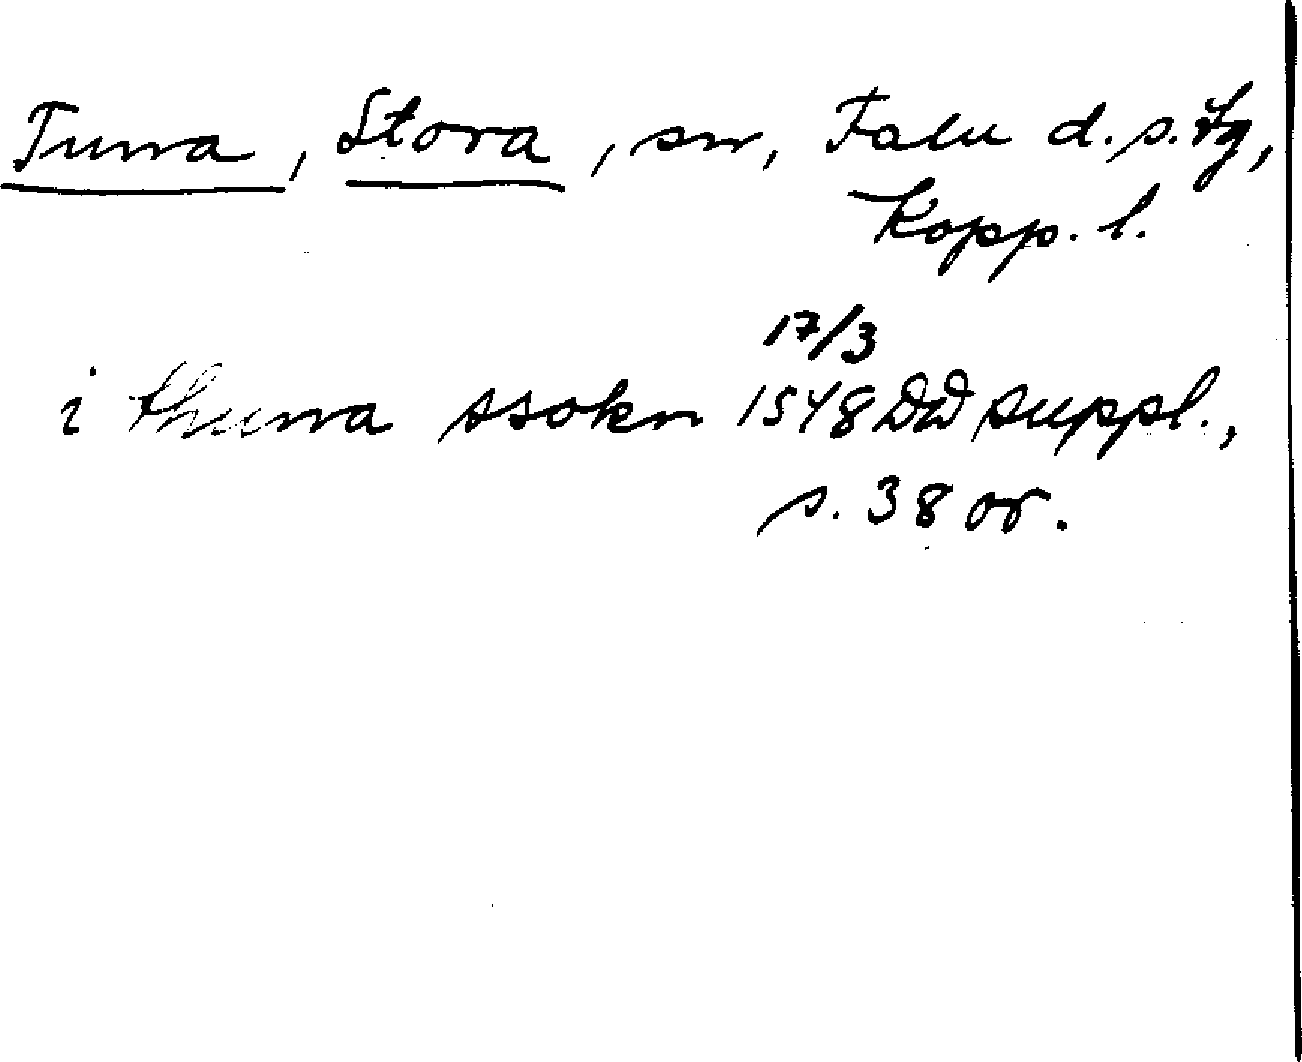 Tuna, Stora, sn, Falu d.s. fg,
Kopp. l.
17/3
i thuna ssokn 1548 DD suppl.,
s. 38 or.